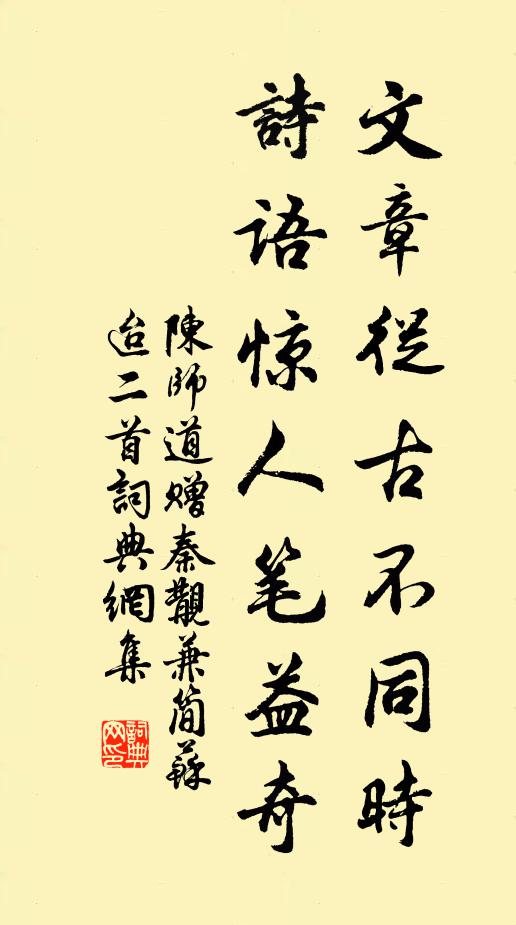 文章從古不同時
詩語惊人笔益奇
陳師道贈秦觀兼简蘇
迨二首詞典網集
詞典网印